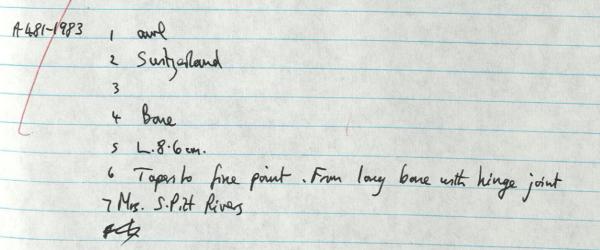 A-481-1983 1 awl
2 Switzerland
3
4 Bone
5 L. 8.6 cm.
6 Tapers to fine point. From long bone with hinge joint
7 Mrs. S. Pitt Rivers